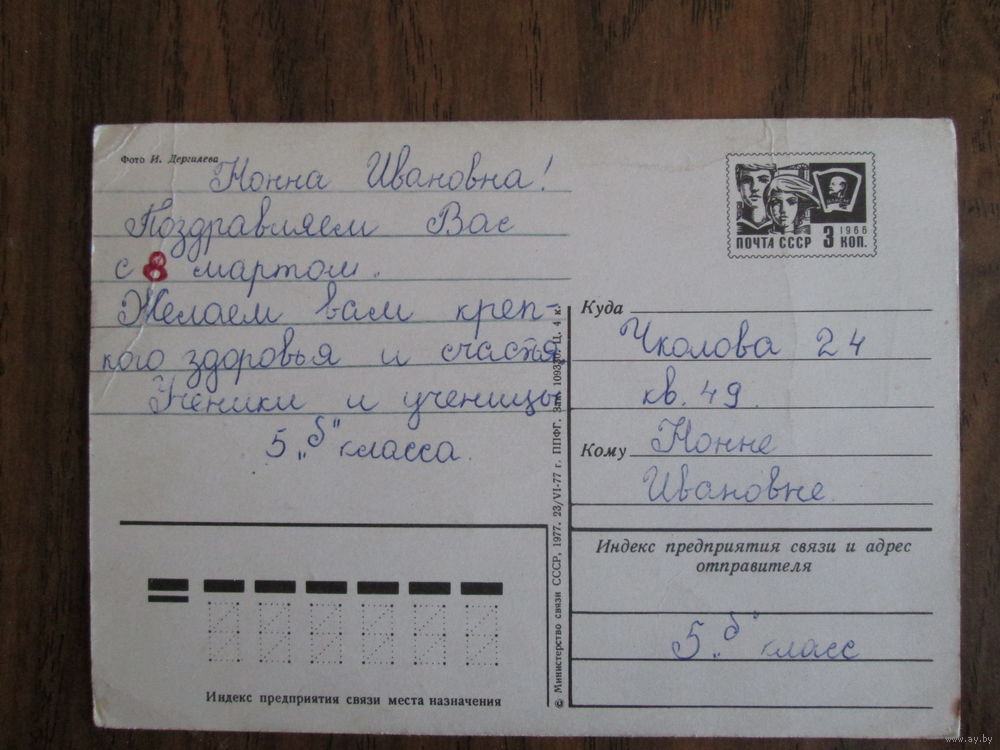 Фото И. Дергилева
Нонна Ивановна!
Поздравляем Вас
с 8 мартом.
Желаем вам креп-
кого здоровья и счастья
Ученики и ученицы
5 „б" класса.
ПОЧТА СССР 3 КОП. 1966
ВЛКСМ
Куда
Чкалова 24
кв. 49.
Кому Нонне
Ивановне.
Индекс предприятия связи и адрес
отправителя
5 „б" класс
Индекс предприятия связи места назначения
© Министерство связи СССР, 1977. 23/VI-77 г. ППФГ. Зак. Ц. 4 к.
www.ay.by